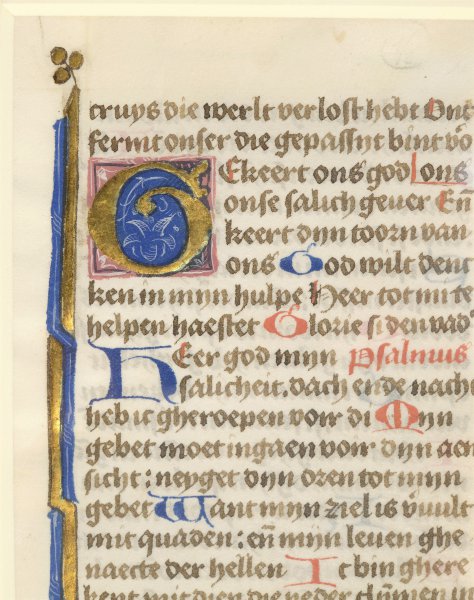 cruys die werlt verlost hebt Ont
fermt onser die gepassyt bint vō
GEkeert ons god ons
onse salich gever En
keert dyn toorn van
ons God wilt denc
ken in myn hulpe Heer tot mi te
helpen haestet Glorie si den vad
HEer god myn Psalmus
salicheit. dach ende nacht
heb ic gheroepen voir di Myn
gebet moet ingaen voir dyn aen
sicht: neyget dyn oren tot myn
gebet Want myn ziel is vvult
mit quaden: eñ myn leven ghe
naecte der hellen Ic bin ghere
kent mit dien die neder